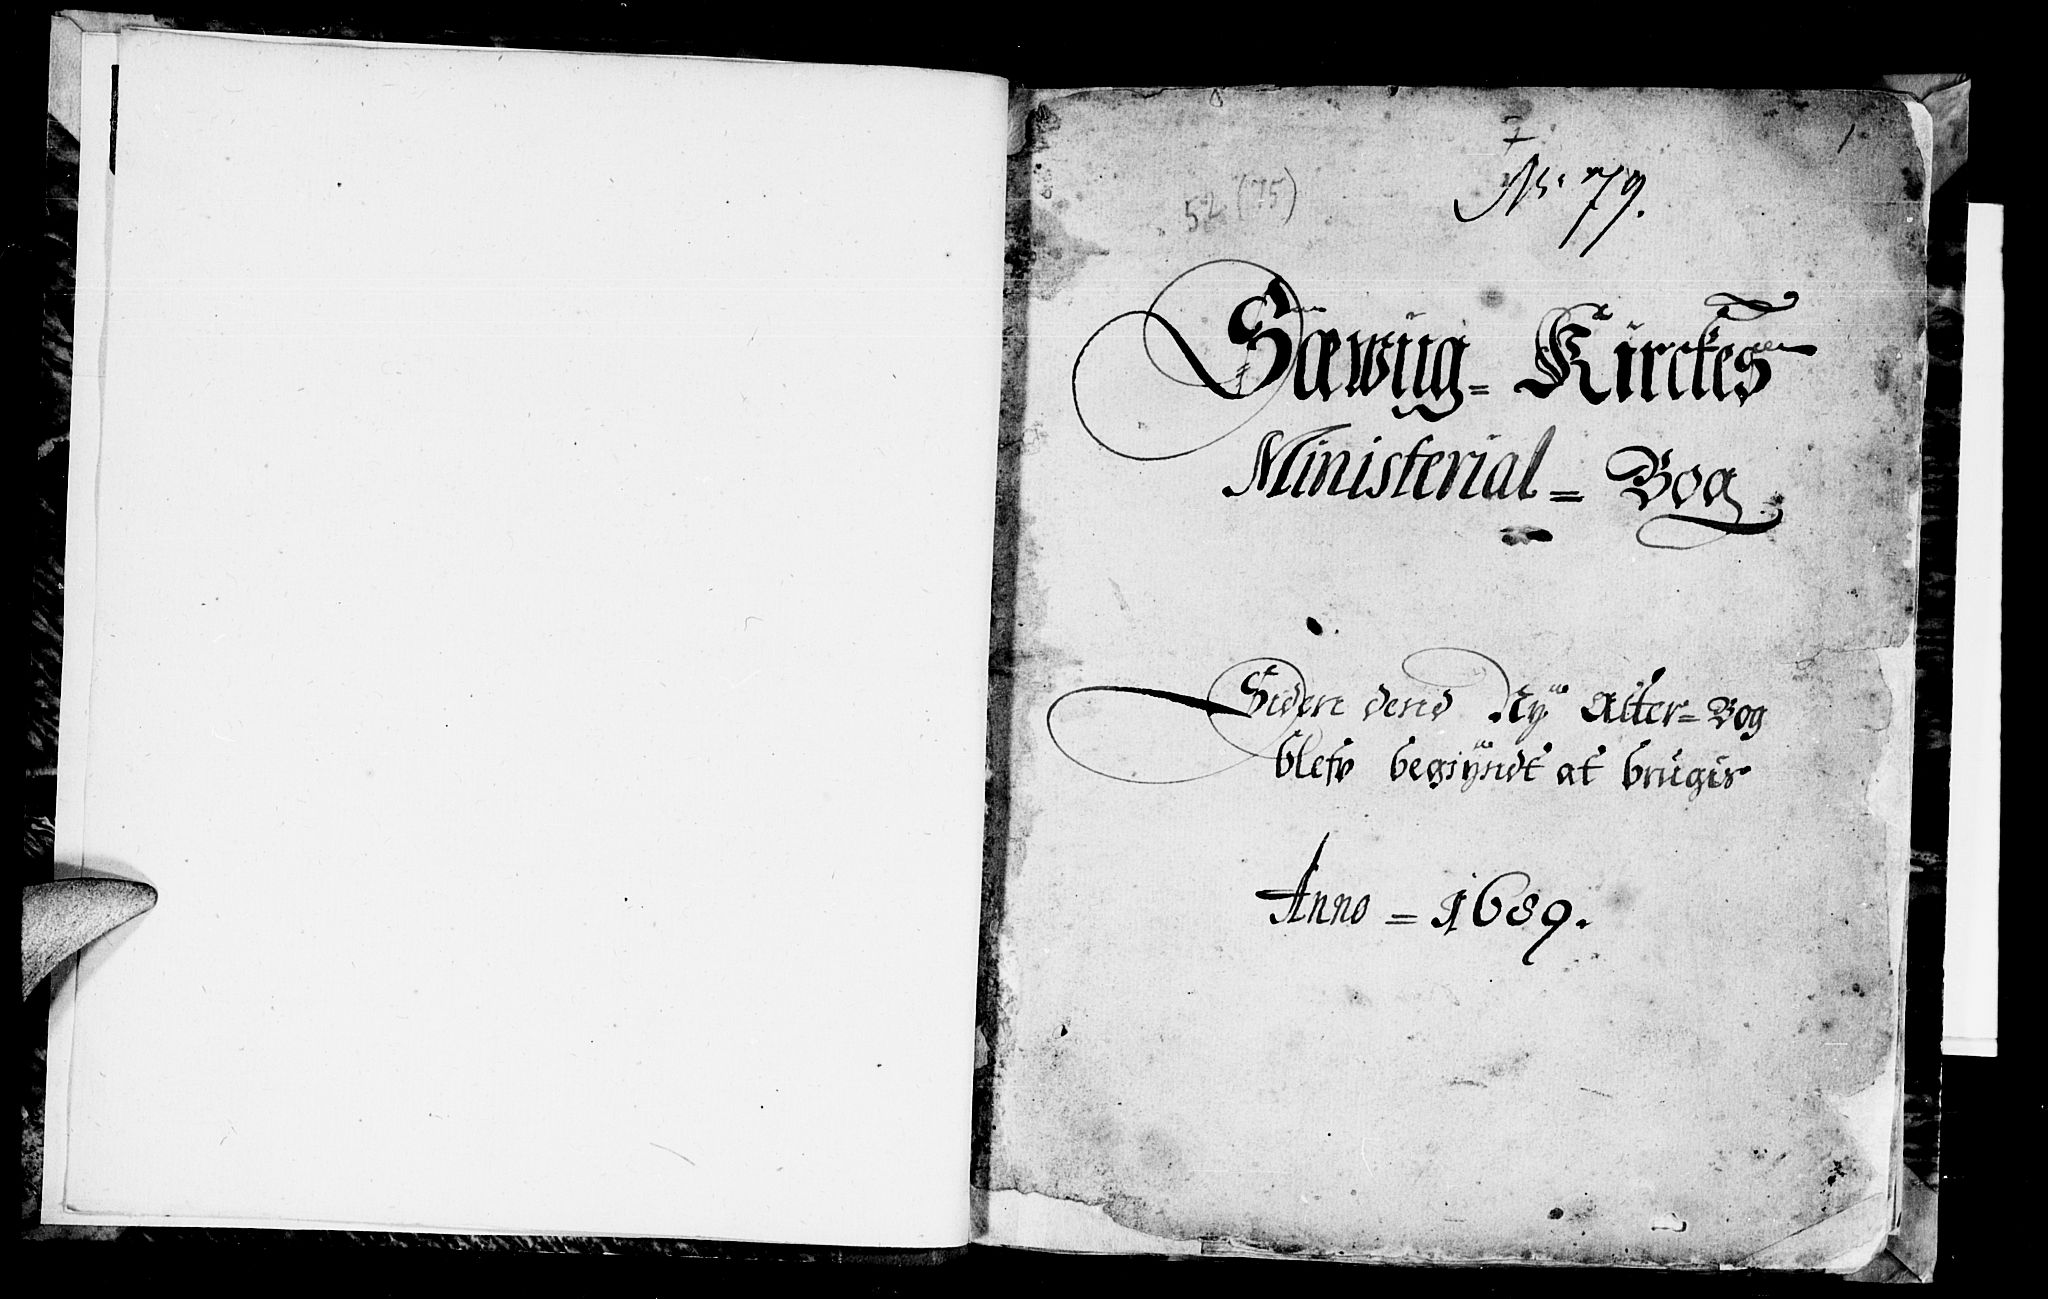 1
No. 79.
52 (75)
Sæwiig = Kirckes
Ministerial = Bog
Siden dend Ny Alter = Bog
blefv begyndt at brugis
Anno = 1689.